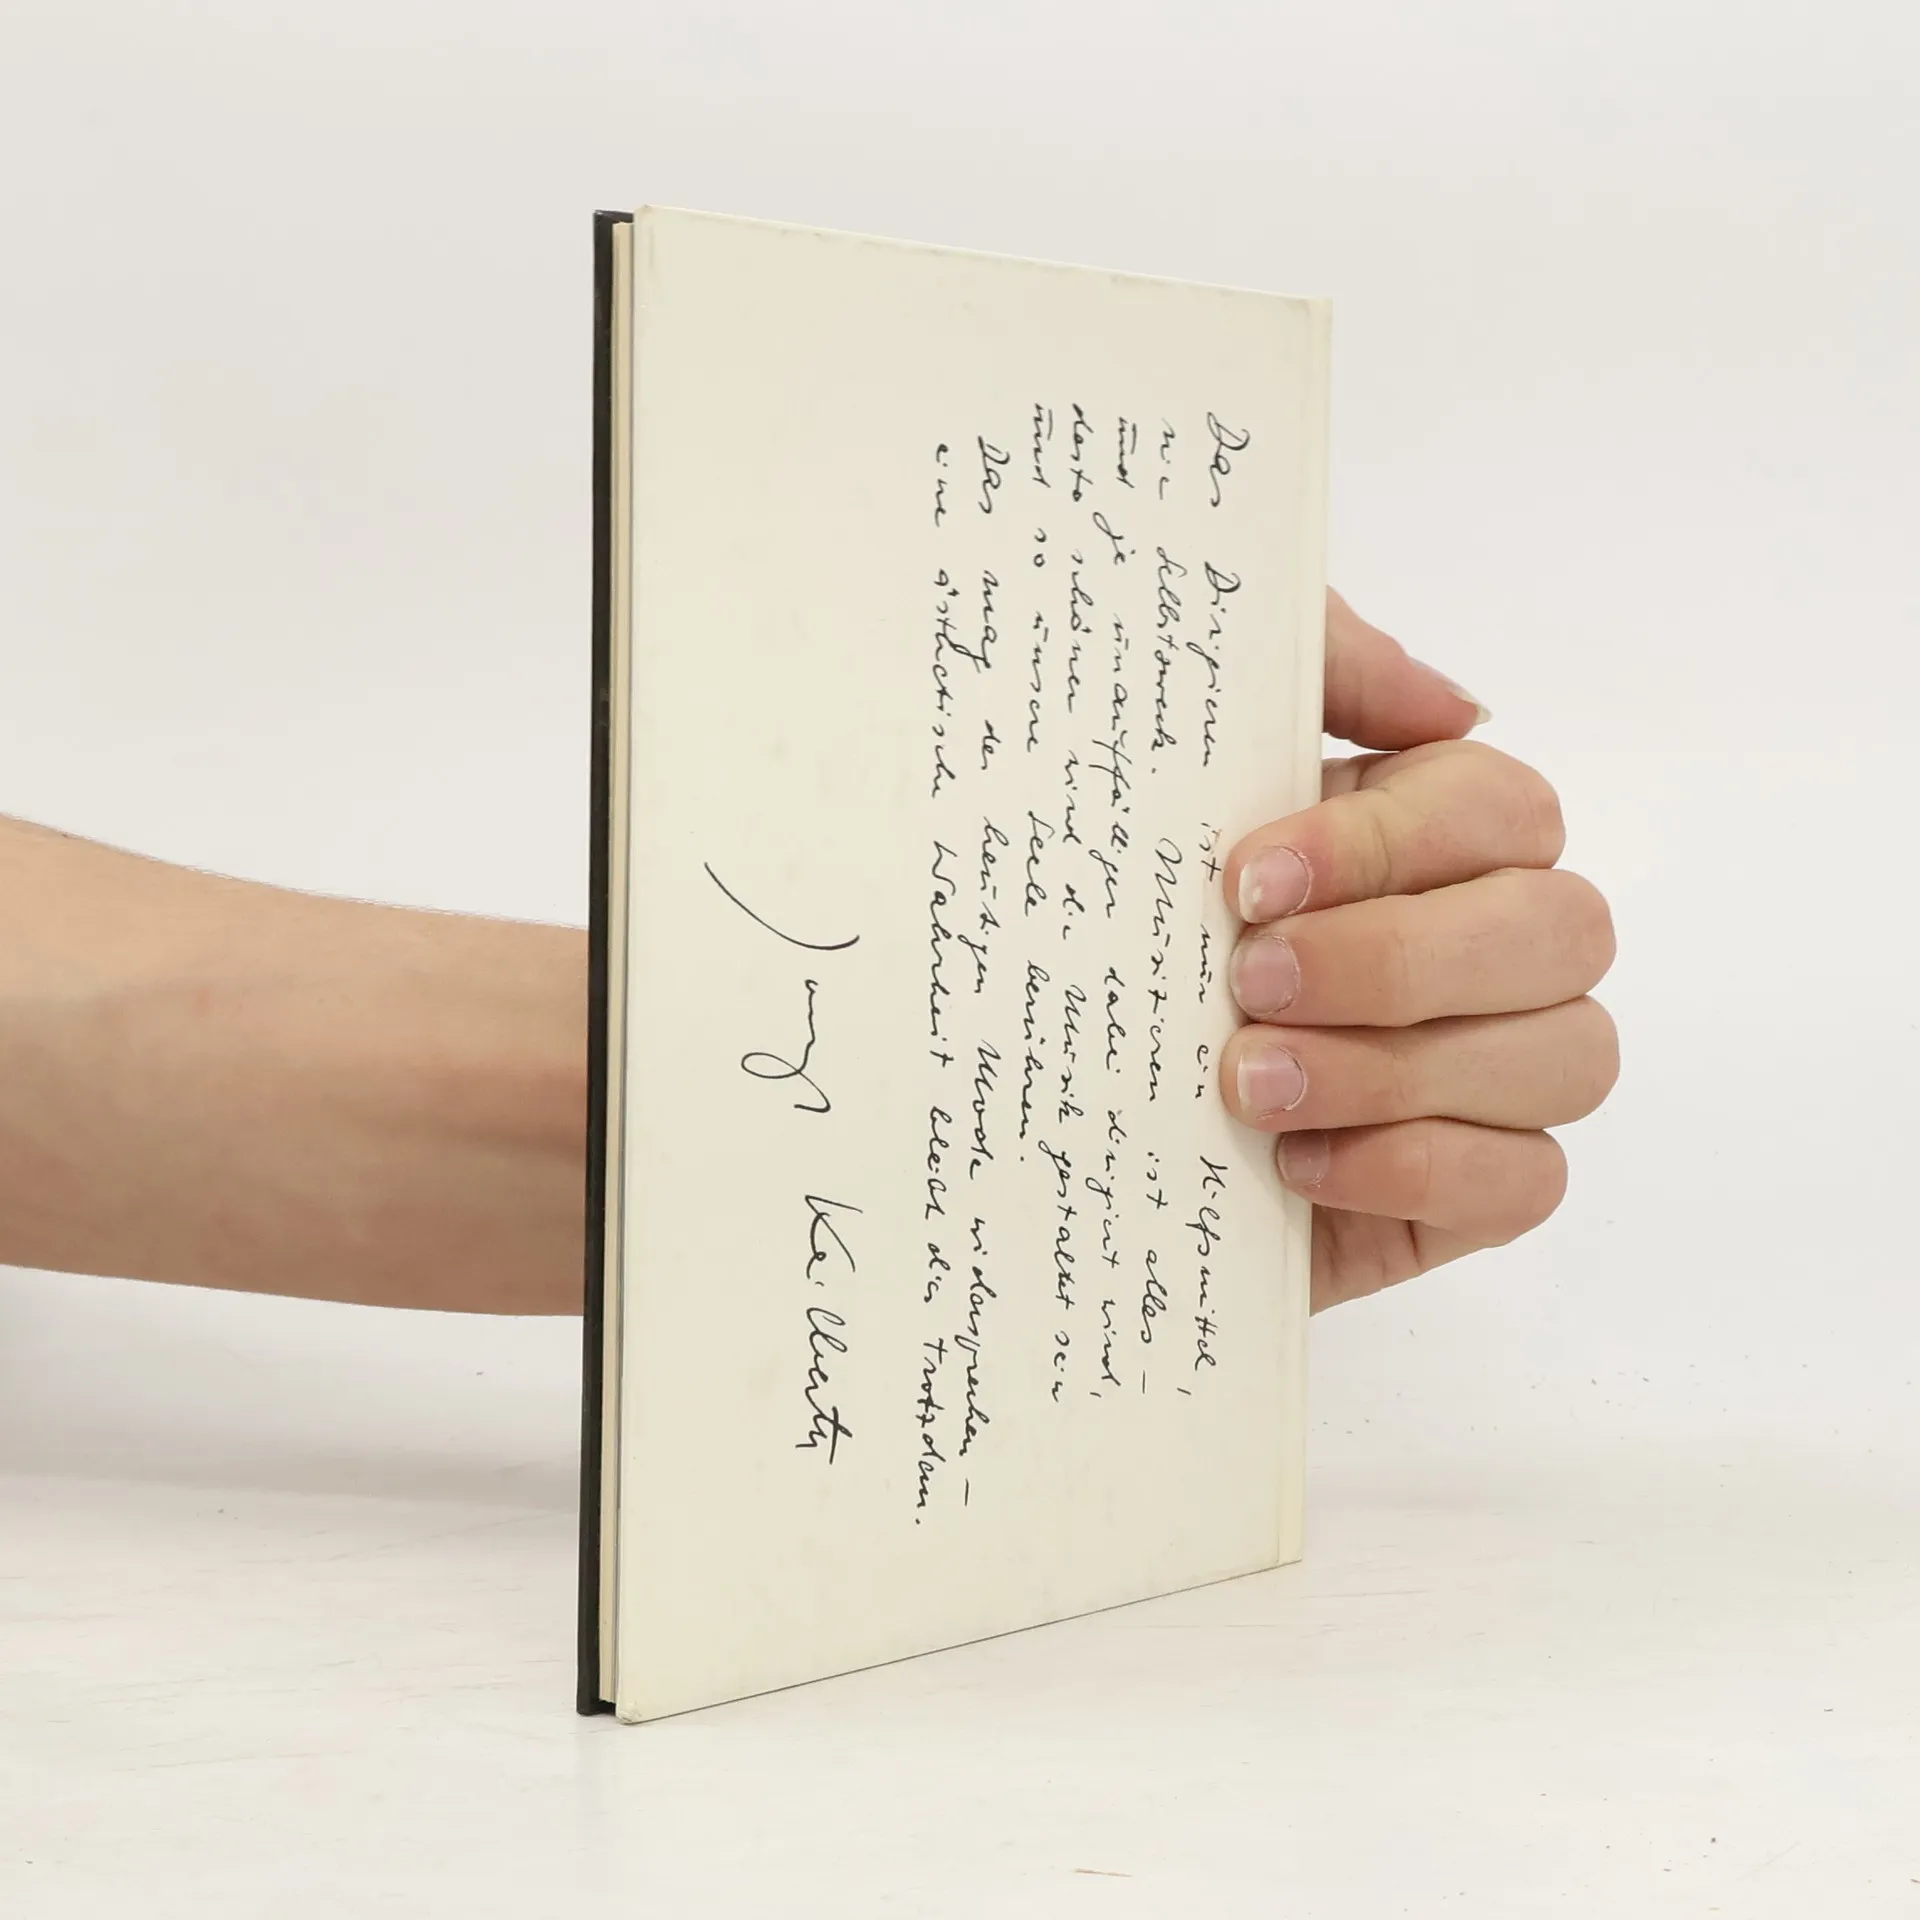 Das Dirigieren ist nur ein Hilfsmittel,
nie Selbstzweck. Musizieren ist alles –
und je unauffälliger dabei dirigiert wird,
desto schöner wird die Musik gestaltet sein
und so unsere Seele berühren.
Das mag der heutigen Mode widersprechen –
eine ästhetische Wahrheit bleibt dies trotzdem.
Joseph Keilberth